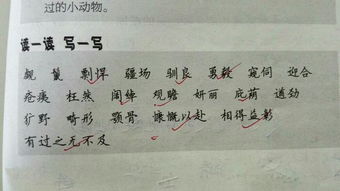 过的小动物。
读一读 写一写
鬣 剽悍 疆场 驯良 勇毅 窥伺 迎合
疮痍 枉然 阔绰 观瞻 妍丽 庇荫 遒劲
犷野 畸形 颚骨 慷慨以赴 相得益彰
有过之无不及